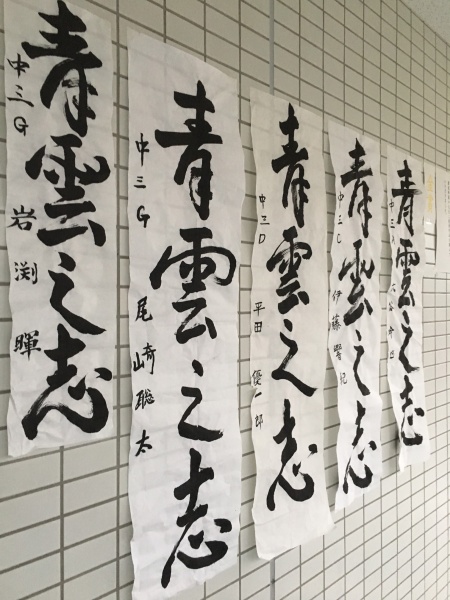 青雲之志
中三G 岩渕 暉
青雲之志
中三G 尾崎聡太
青雲之志
中三D 平田優一郎
青雲之志
中三C 伊藤
青雲之志
中三A